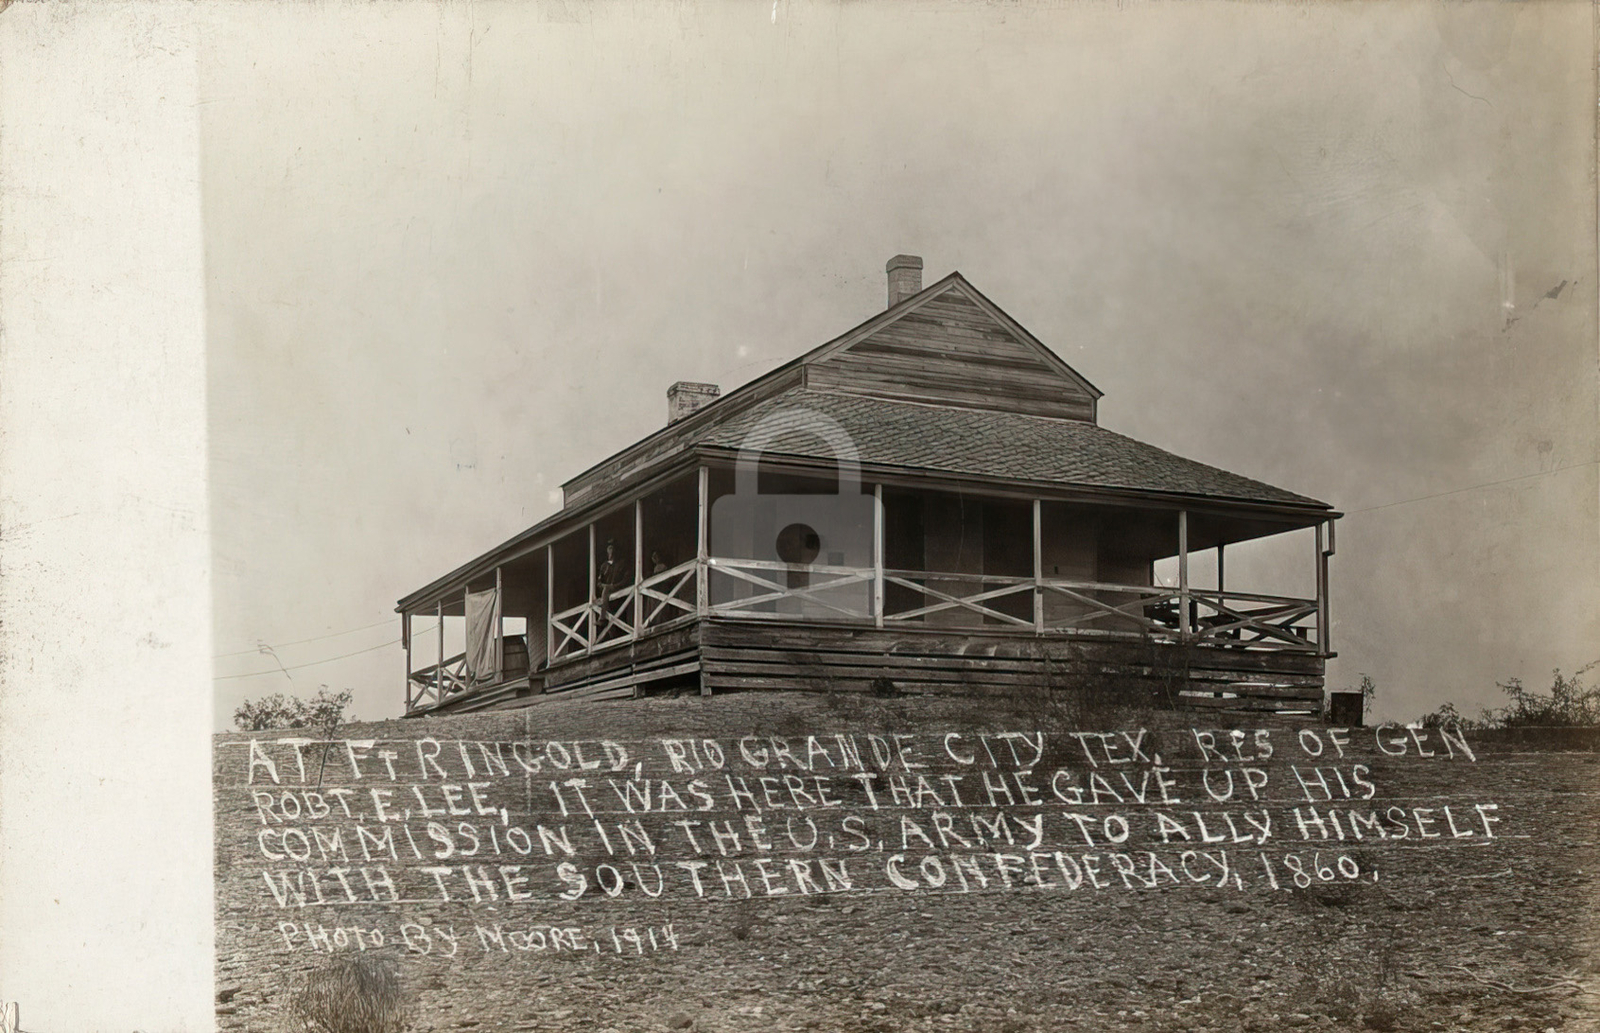 AT FT RINGOLD, RIO GRANDE CITY TEX, RES OF GEN
ROBT. E. LEE, IT WAS HERE THAT HE GAVE UP HIS
COMMISSION IN THE U.S. ARMY TO ALLY HIMSELF
WITH THE SOUTHERN CONFEDERACY, 1860.
PHOTO BY MOORE, 1914